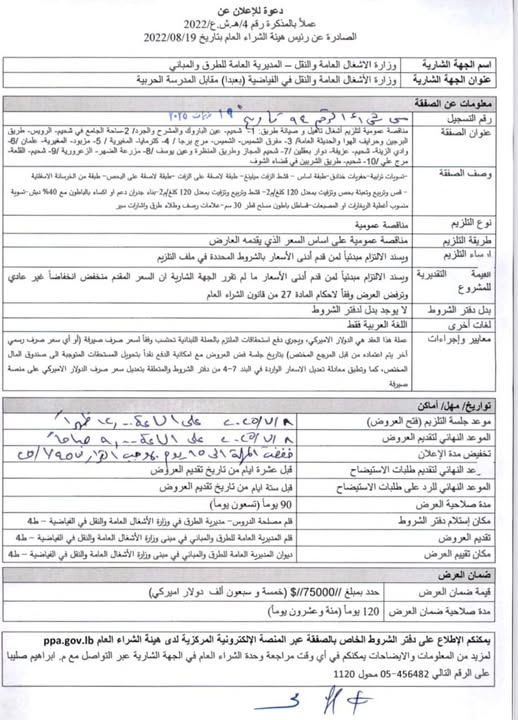 دعوة للإعلان عن
عملاً بالمذكرة رقم 4/هـ.ش.ع/2022
الصادرة عن رئيس هيئة الشراء العام بتاريخ 2022/08/19
اسم الجهة الشارية وزارة الاشغال العامة والنقل – المديرية العامة للطرق والمباني
عنوان الجهة الشارية وزارة الأشغال العامة والنقل في الفياضية (بعبدا) مقابل المدرسة الحربية
معلومات عن الصفقة
رقم التسجيل
عنوان الصفقة مناقصة عمومية لتلزيم أشغال تأهيل و صيانة طريق: 1- شحيم، عين الباروك والمشرح والجرد/ 2-ساحة الجامع في شحيم- الرويس- طريق
البرجين وحرايف الهوا والحديثة العام/ 3- مفرق الشميس، الشميس- مرج برجا / 4- كترمايا- المغيرية / 5- مزبود- المغيرية- علمان /6-
وادي الزينة- شحيم- عزيفة- دوار بعقلين /7- شحيم المجاز وطريق المنظرة وعين يوسف /8- مزرعة الضهر- الزعرورية /9- القلعة-
مرج علي /10- طريق الشربين في قضاء الشوف
وصف الصفقة -تسويات ترابية -حفريات خنادق -طبقة اساس - قشط الزفت ميلينغ- طبقة لاصقة على الزفت- طبقة لاصقة على البحص- طبقة من الخرسانة الاسفلتية
- قص وتربيع وتعبئة بحص وتزفيت بمعدل 120 كلغ/م2- قشط وتربيع وتزفيت بمعدل 120 كلغ/م2-بناء جدران دعم او اكساء بالباطون مع 40% دبش-تسوية
منسوب أغطية الريغارات أو المصبعات-قساطل باطون مسلح قطر 30 سم-علامات رصف وطلاء طرق واشارات سير
نوع التلزيم مناقصة عمومية
طريقة التلزيم مناقصة عمومية على اساس السعر الذي يقدمه العارض
ارساء التلزيم ويسند الالتزام مبدئياً لمن قدم أدنى الأسعار بالشروط المحددة في ملف التلزيم
القيمة التقديرية للمشروع ويسند الالتزام مبدئياً لمن قدم أدنى الأسعار ما لم تقرر الجهة الشارية ان السعر المقدم منخفض انخفاضاً غير عادي
وترفض العرض وفقاً لاحكام المادة 27 من قانون الشراء العام
بدل دفتر الشروط لا يوجد بدل لدفتر الشروط
لغات أخرى اللغة العربية فقط
معايير وإجراءات عملة هذا العقد هي الدولار الاميركي، ويجري دفع استحقاقات الملتزم بالعملة اللبنانية تحتسب وفقاً لسعر صرف صيرفة (أو أي سعر صرف رسمي
آخر يتم اعتماده من قبل المرجع المختص) بتاريخ جلسة فض العروض مع امكانية الدفع نقداً بتحويل المستحقات المتوجبة الى صندوق المال
المختص، كما وتطبق معادلة تعديل الاسعار الواردة في البند 7–4 من دفتر الشروط والمتعلقة بتعديل سعر صرف الدولار الاميركي على منصة
صيرفة
تواريخ/ مهل/ أماكن
موعد جلسة التلزيم (فتح العروض)
الموعد النهائي لتقديم العروض
تخفيض مدة الإعلان
عد النهائي لتقديم طلبات الاستيضاح قبل عشرة ايام من تاريخ تقديم العروض
الموعد النهائي للرد على طلبات الاستيضاح قبل ستة ايام من تاريخ تقديم العروض
مدة صلاحية العرض 90 يوماً (تسعون يوماً)
مكان إستلام دفتر الشروط قلم مصلحة الدروس- مديرية الطرق في وزارة الأشغال العامة والنقل في الفياضية – ط4
تقديم العروض قلم المديرية العامة للطرق والمباني في مبنى وزارة الأشغال العامة والنقل في الفياضية – ط4
مكان تقييم العرض ديوان المديرية العامة للطرق والمباني في مبنى وزارة الأشغال العامة والنقل في الفياضية – ط4
ضمان العرض
قيمة ضمان العرض حدد بمبلغ //75000//$ (خمسة و سبعون ألف دولار اميركي)
مدة صلاحية ضمان العرض 120 يوماً (مئة وعشرون يوم)
يمكنكم الإطلاع على دفتر الشروط الخاص بالصفقة عبر المنصة الإلكترونية المركزية لدى هيئة الشراء العام ppa.gov.lb
لمزيد من المعلومات والايضاحات يمكنكم في أي وقت مراجعة وحدة الشراء العام في الجهة الشارية عبر التواصل مع م. ابراهيم صليبا
على الرقم التالي 456482-05 محول 1120